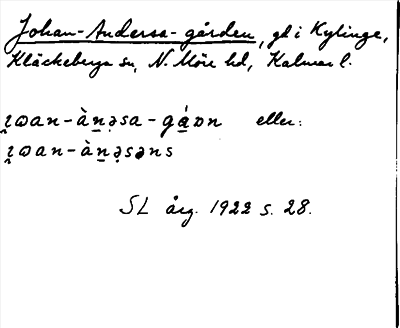 Johan-Andersa-gården, gd i Kylinge,
Kläckeberga sn, N. Möre hd, Kalmar l.
ꞎωan-àn̠ə̣sa-gá̠ɒn eller:
ωan-àn̠ə̣səns
SL årg. 1922 s. 28.